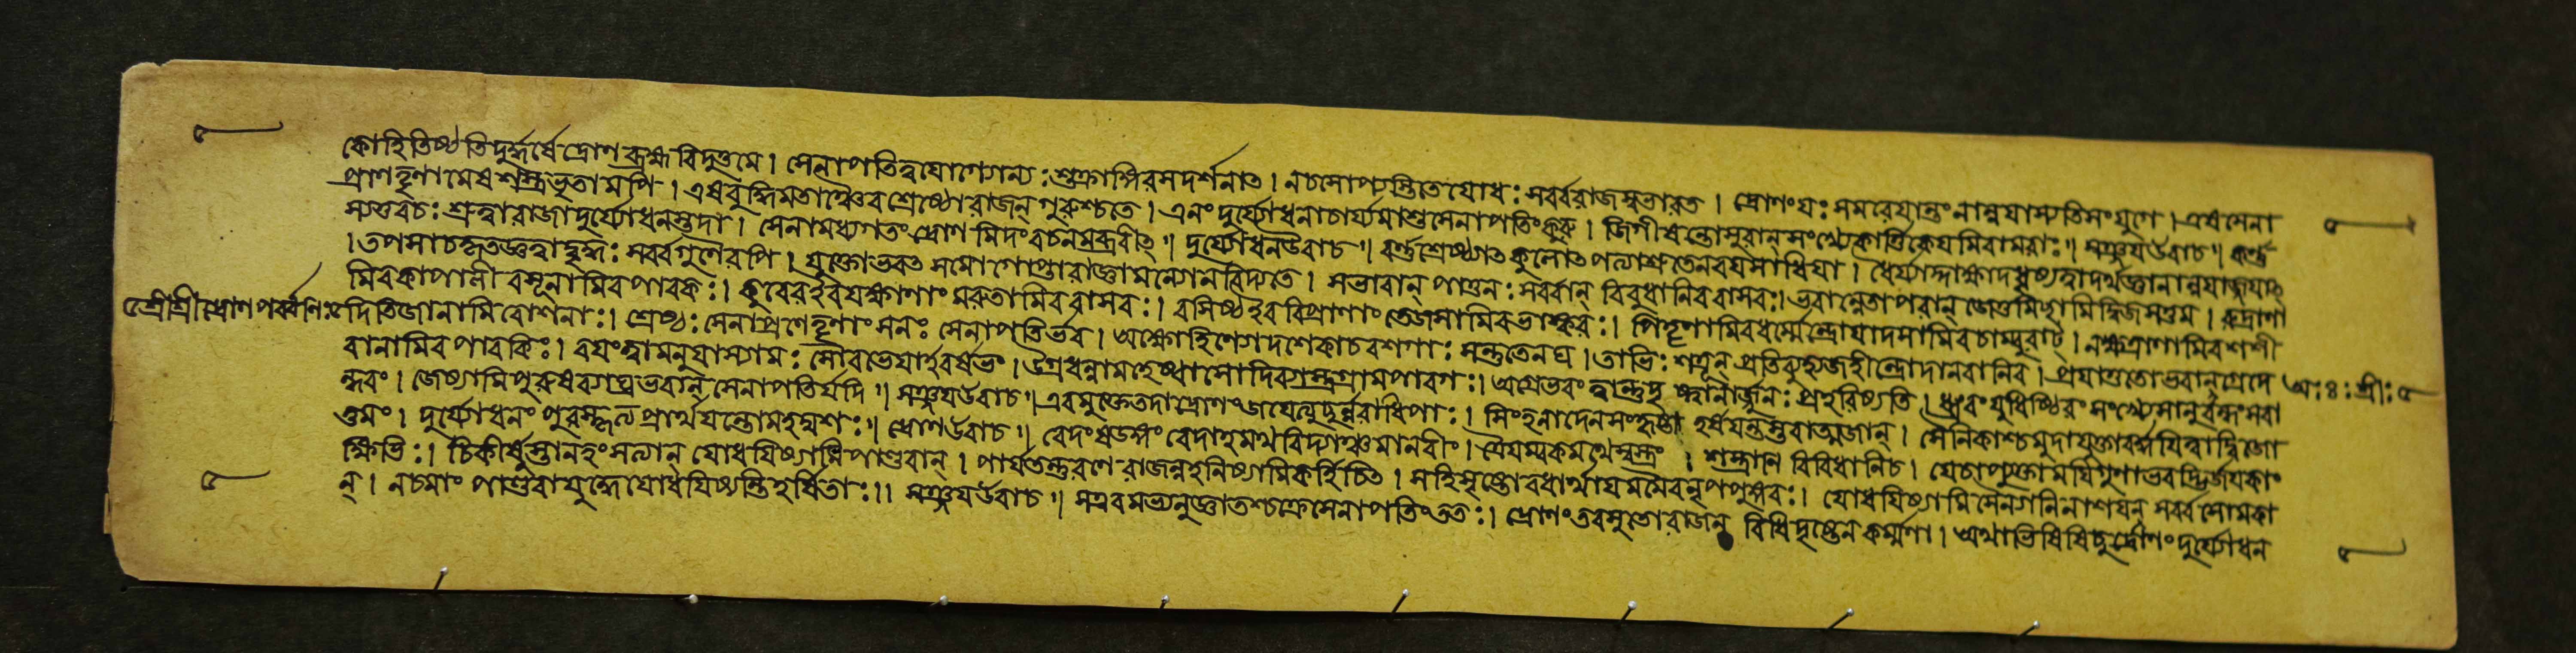 কোহিতিষ্ঠতিদুর্দ্ধর্ষে দ্রোণে ব্রহ্মবিদুত্তমে । সেনাপতিত্বযোগ্যোন্যঃ শুক্রাঙ্গিরসদর্শনাত । নচসোপ্যস্তিতেযোধঃ সর্ব্বরাজসুভারত । দ্রোণংযঃ সমরেযান্তংনানুযাস্যতিসংযুগে । এষসেনা
প্রণেতৄণামেষশস্ত্রভৃতামপি । এষবুদ্ধিমতাঞ্চৈব শ্রেষ্ঠোরাজন্ গুরুশ্চতে । এনং দুর্য্যোধনাচার্য্যমাশুসেনাপতিংকুরু । জিগীষন্তোসুরান্ সংখ্যেকার্ত্তিকেযমিবামরাঃ ॥ সঞ্জযউবাচ ॥ কর্ণ্ণ
স্যতুবচঃ শ্রুত্বারাজাদুর্য্যোধনস্তদা । সেনামধ্যগতং দ্রোণমিদং বচনমব্রবীত্ ॥ দুর্য্যোধনউবাচ ॥ বর্ণ্ণশ্রৈষ্ঠ্যাত কুলোত্পত্যাশ্রুতেনবযসাধিযা । ধৈর্য্যাদ্দাক্ষ্যাদধৃষ্যত্বাদর্থজ্ঞানান্নযাজ্জযাত্
। তপসাচকৃতজ্ঞত্বাদ্বৃদ্ধঃ সর্ব্বগুণৈরপি । যুক্তোভবত সমোগোপ্তারাজ্ঞামন্যোনবিদ্যতে । সভাবান্ পাতুনঃ সর্ব্বান্ বিবুধানিববাসবঃ । ভবান্নেতাপরান্ জেতুমিচ্ছামিদ্বিজসত্তম । রুদ্রাণা
মিবকাপালী বসূনামিবপাবকঃ । কুবেরইবযক্ষাণাং মরুতামিববাসবঃ । বসিষ্ঠইববিপ্রাণাং তেজসামিবভাস্করঃ । পিতৄণামিবধর্ম্মেন্দ্রোযাদসামিবচাম্বুরাট্ । নক্ষত্রাণামিবশশী
৫শ্রীশ্রীদ্রোণপর্ব্বণিঃ দিতিজানামিবোশনাঃ । শ্রেষ্ঠঃ সেনাপ্রণেতৄণাং সনঃ সেনাপতির্ভব । অক্ষৌহিণ্যেদশৈকাচবশগাঃ সন্তুতেনঘ । তাভিঃ শত্রূন্ প্রতিব্যুহ্যজহীন্দ্রোদানবানিব । প্রযাতুতোভবানগ্রেদে অঃ ৪ঃ শ্রীঃ ৫
বানামিবপাবকিঃ । বযংত্বামনুযাস্যামঃ সৌরভেযাইবর্ষভং । উগ্রধন্বামহেষ্বাসোদিব্যাস্ত্রগ্রামপারগঃ । অগ্রেভবং ত্বান্তুদৃ নার্জুনঃ প্রহরিষ্যতি । ধ্রুবংযুধিষ্ঠিরং সংখ্যেসানুবন্ধংসবা
ন্ধবং । জেষ্যামিপুরুষব্যাঘ্রভবান্ সেনাপতির্যদি ॥ সঞ্জযউবাচ ॥ এবমুক্তেতদাদ্রোণং জযেত্যূচুর্নরাধিপাঃ । সিংহনাদেনসংহৃষ্টা হর্ষযন্তস্তবাত্মজান্ । সৈনিকাশ্চমুদাযুক্তাবর্দ্ধযিত্বাদ্বিজো
ত্তমং । দুর্য্যোধনং পুরস্কৃত্য প্রার্থযন্তোমহদ্যশঃ ॥ দ্রোণউবাচ ॥ বেদংষডঙ্গং বেদাহমর্থবিদ্যাঞ্চমানবীং । ত্রৈযম্বকমথেষ্বস্ত্রং । শস্ত্রাণি বিবিধানিচ । যেচাপ্যুক্তামযিগুণাভবদ্ভির্জযকাং
ক্ষিভিঃ । চিকীর্ষুস্তানহংসত্যান্ যোধযিষ্যামিপাণ্ডবান্ । পার্ষতন্তুরণেরাজন্নহনিষ্যামিকর্হিচিত । সহিসৃষ্টোবধার্থাযমমৈবনৃপপুঙ্গবঃ । যোধযিষ্যামিসৈন্যানিনাশযন্ সর্ব্বসোমকা
ন্ । নচমাং পাণ্ডবাযুদ্ধেযোধযিষ্যন্তিহর্ষিতাঃ ॥ সঞ্জযউবাচ ॥ সএবমভ্যনুজ্ঞাতশ্চক্রেসেনাপতিংততঃ । দ্রোণংতবসুতোরাজন্ বিধিদৃষ্টেনকর্ম্মণা । অথাভিষিষিচুর্দ্রোণংদুর্য্যোধন